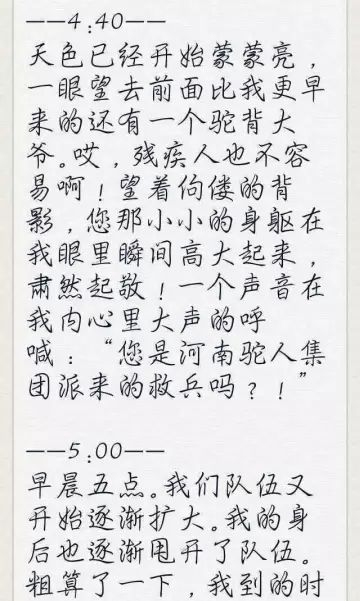 ——4:40——
天色已经开始蒙蒙亮，
一眼望去前面比我更早
来的还有一个驼背大
爷。哎，残疾人也不容
易啊！望着佝偻的背
影，您那小小的身躯在
我眼里瞬间高大起来，
肃然起敬！一个声音在
我内心里大声的呼
喊：“您是河南驼人集
团派来的救兵吗？！”
——5:00——
早晨五点。我们队伍又
开始逐渐扩大。我的身
后也逐渐甩开了队伍。
粗算了一下，我到的时